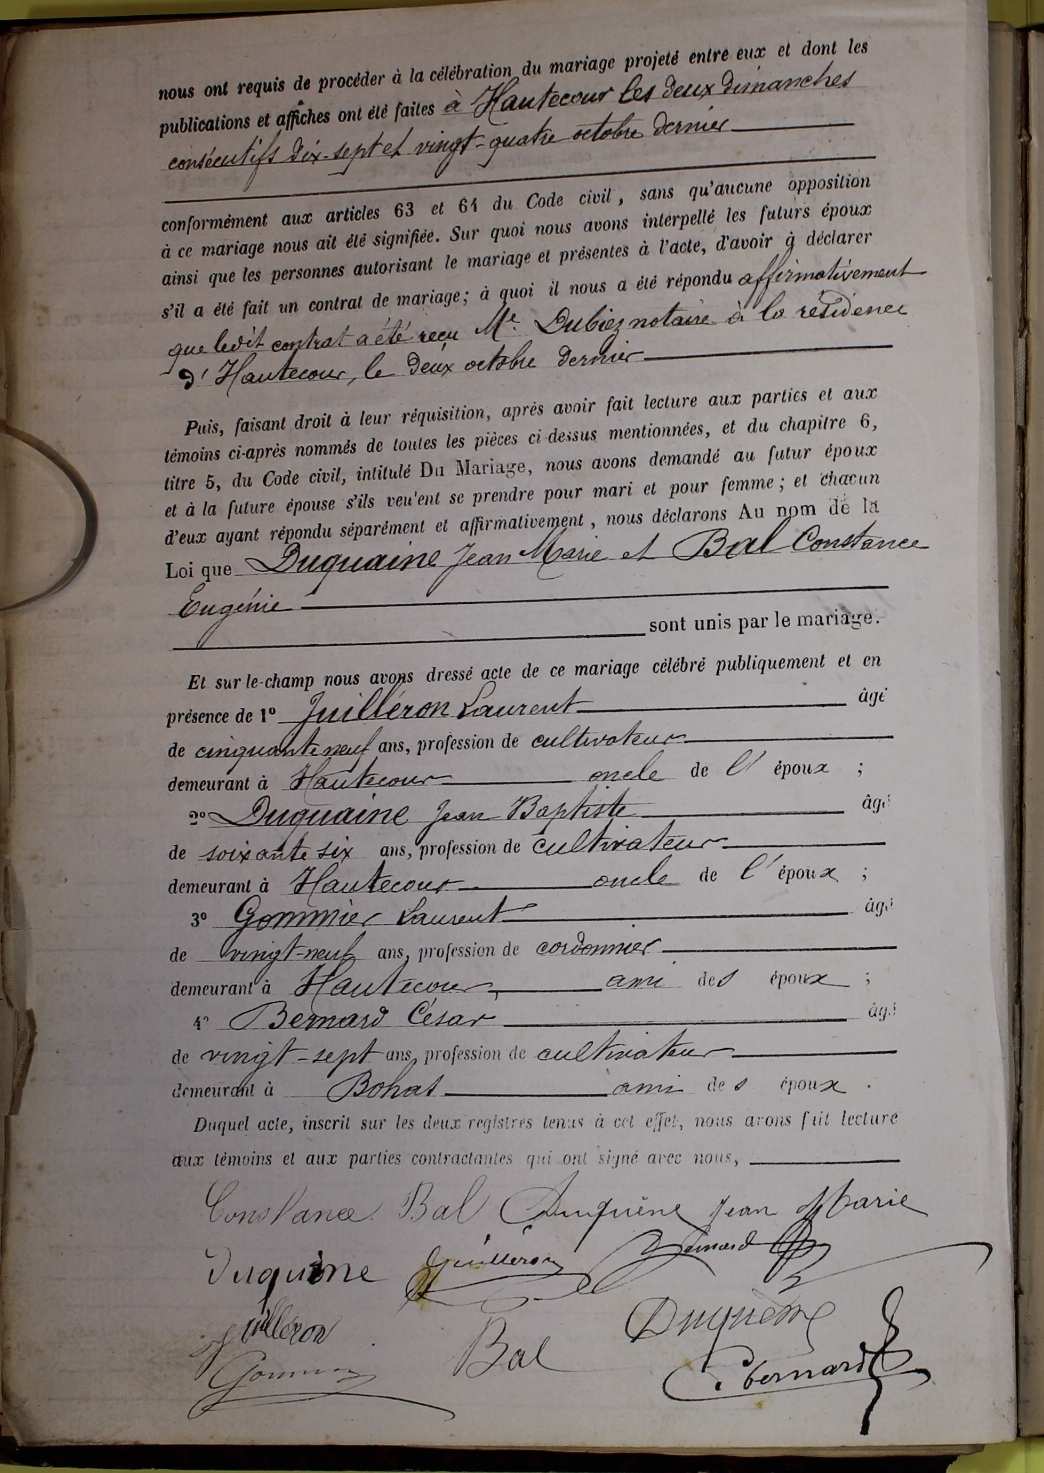 nous ont requis de procéder à la célébration du mariage projeté entre eux et dont les
publications et affiches ont été faites à Hautecour les deux dimanches
consécutifs dix-sept et vingt-quatre octobre dernier
conformément aux articles 63 et 64 du Code civil, sans qu'aucune opposition
à ce mariage nous ait été signifiée. Sur quoi nous avons interpellé les futurs époux
ainsi que les personnes autorisant le mariage et présentes à l'acte, d'avoir à déclarer
s'il a été fait un contrat de mariage; à quoi il nous a été répondu affirmativement
que ledit contrat a été reçu Me. Dubiez notaire à la résidence
d'Hautecour, le deux octobre dernier
Puis, faisant droit à leur réquisition, après avoir fait lecture aux parties et aux
témoins ci-après nommés de toutes les pièces ci-dessus mentionnées, et du chapitre 6,
titre 5, du Code civil, intitulé Du Mariage, nous avons demandé au futur époux
et à la future épouse s'ils veu'ent se prendre pour mari et pour femme; et chacun
d'eux ayant répondu séparément et affirmativement, nous déclarons Au nom de la
Loi que Duquaine Jean Marie et Bal Constance
Eugénie
sont unis par le mariage.
Et sur-le-champ nous avons dressé acte de ce mariage célébré publiquement et en
présence de 1° Juilléron Laurent âgé
de cinquante neuf ans, profession de cultivateur
demeurant à Hautecour oncle de l'époux ;
2° Duquaine Jean Baptiste âgé
de soixante six ans, profession de cultivateur
demeurant à Hautecour oncle de l'époux ;
3° Gommier Laurent âgé
de vingt-neuf ans, profession de cordonnier
demeurant à Hautecour, ami des époux ;
4° Bernard César âgé
de vingt-sept ans, profession de cultivateur
demeurant à Bohas ami des époux .
Duquel acte, inscrit sur les deux registres tenus à cet effet, nous avons fait lecture
aux témoins et aux parties contractantes qui ont signé avec nous,
Constance Bal Duquène Jean Marie
Duquine Juilleron Bernard
Juilléron Bal Duquène
Gommier C bernard